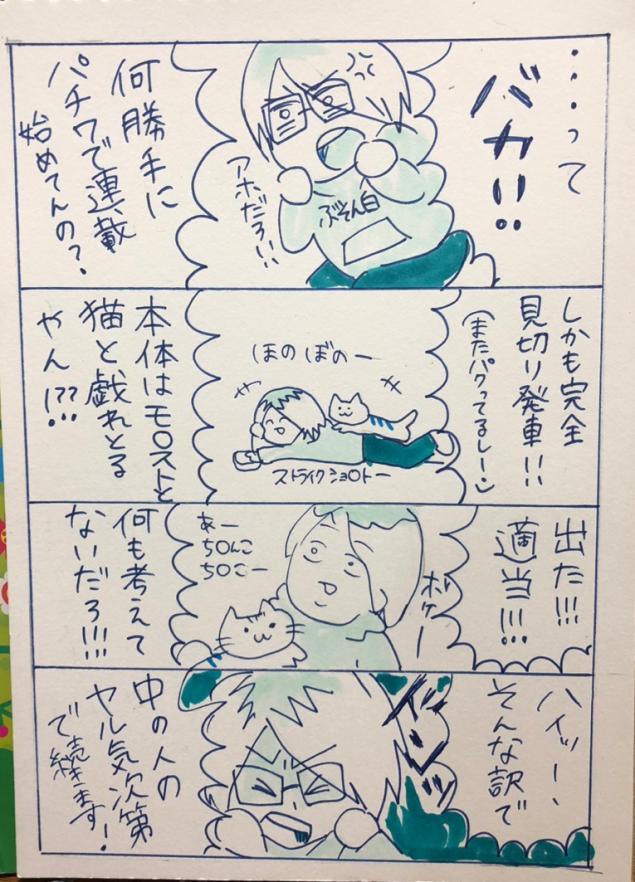 ・・・って
バカ!!
ハッ
アホだろ!!
ぶそん白
何勝手に
パチワで連載
始めてんの?
しかも完全
見切り発車!!
(またパクってるしー)
ほのぼのー
ストライクショ〇トー
本体はモ〇ストと
猫と戯れとる
やん!??
出た!!!
適当!!!
ボケー
あー
ち〇んこ
ち〇こー
何も考えて
ないだろ!!!
ハイッー、
そんな訳で
中の人の
ヤル気次第
で続きます!